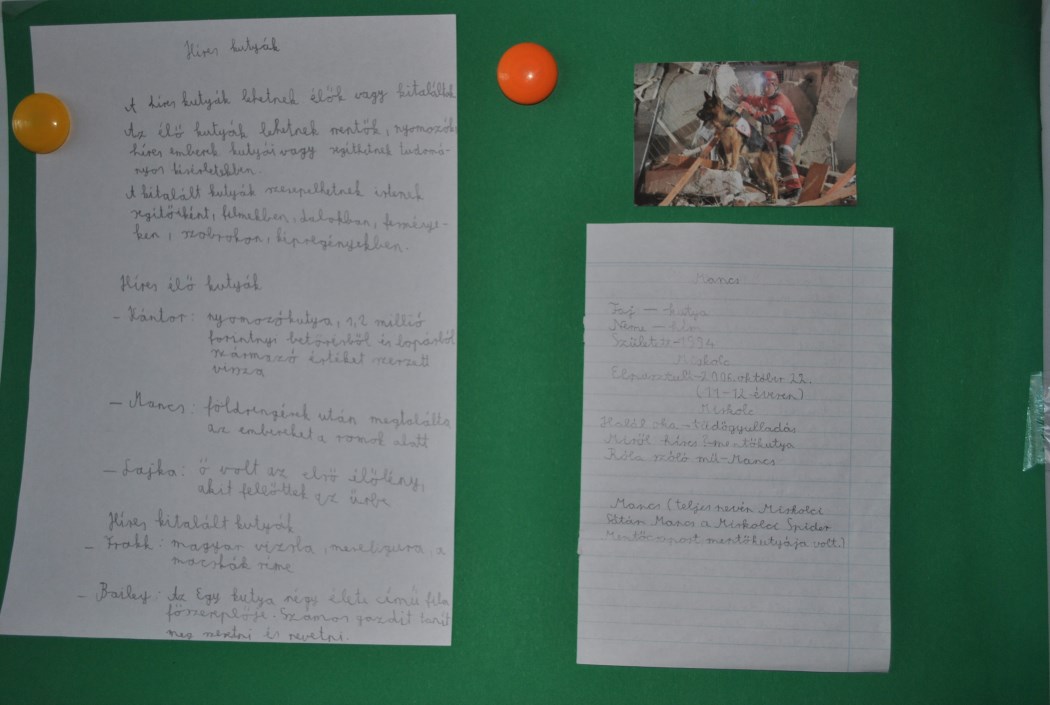 Híres kutyák
A híres kutyák lehetnek élők vagy kitaláltak
Az élő kutyák lehetnek mentők, nyomozók
híres emberek kutyái vagy segíthetnek tudomá-
nyos kísérletekben.
A kitalált kutyák szerepelhetnek istenek
segítőiként, filmekben, dalokban, festménye-
ken, szobrokon, képregényekben.
Híres élő kutyák
- Kántor: nyomozókutya, 1,2 millió
forintnyi betörésből és lopásból
származó értéket szerzett
vissza
- Mancs: földrengések után megtalálta
az embereket a romok alatt
- Lajka: ő volt az első élőlény,
akit fellőttek az űrbe
Híres kitalált kutyák
- Frakk: magyar vizsla, mesefigura, a
macskák réme
- Bailey: Az Egy kutya négy élete című film
főszereplője. Számos gazdit tanít
meg szeretni és nevetni.
Mancs
Faj - kutya
Neme - kan
Született - 1994
Miskolc
Elpusztult - 2006. október 22.
(11-12 évesen)
Miskolc
Halál oka - tüdőgyulladás
Miről híres? - mentőkutya
Róla szóló mű - Mancs
Mancs (teljes nevén Miskolci
Sátán Mancs a Miskolci Spider
Mentőcsoport mentőkutyája volt.)